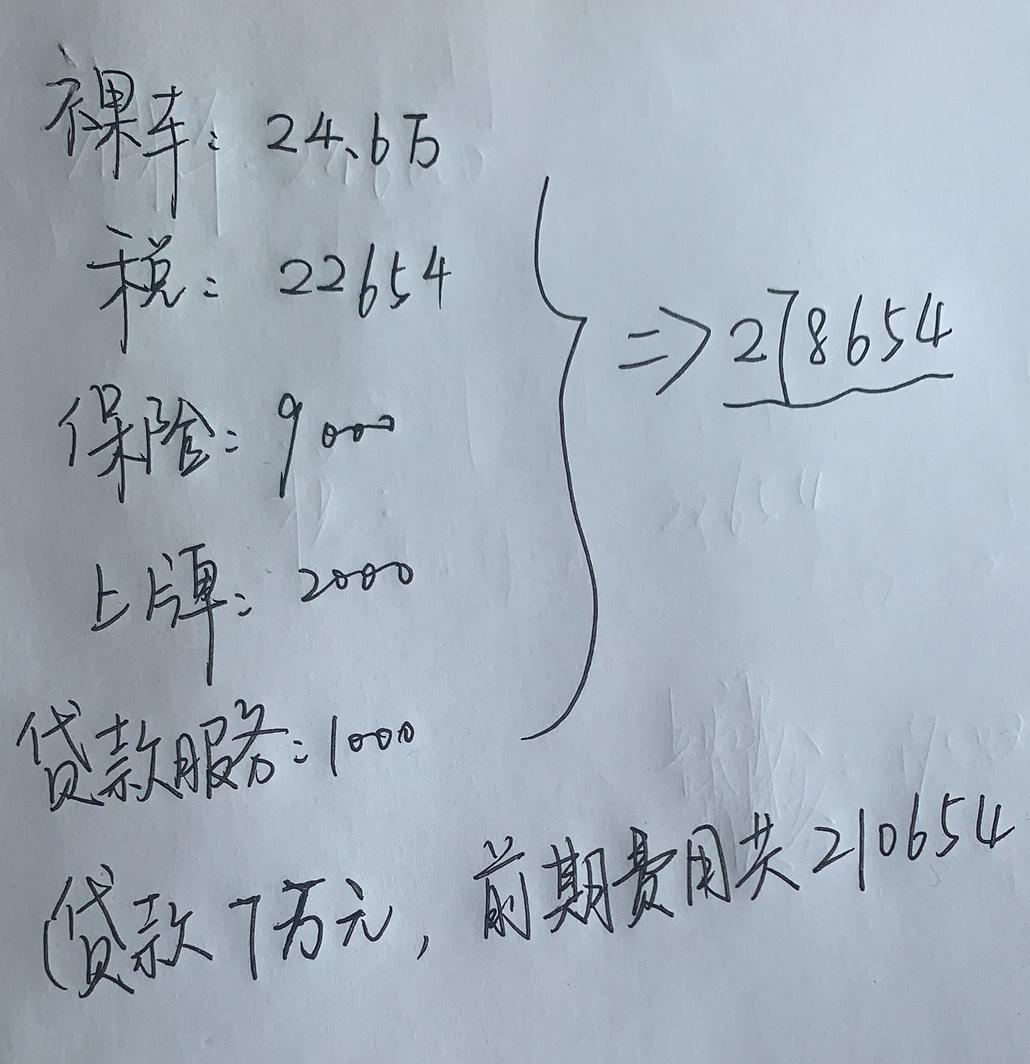 裸车：24.6万
税：22654
保险：9000
上牌：2000
贷款服务：1000
=> 278654
(贷款7万元，前期费用共210654